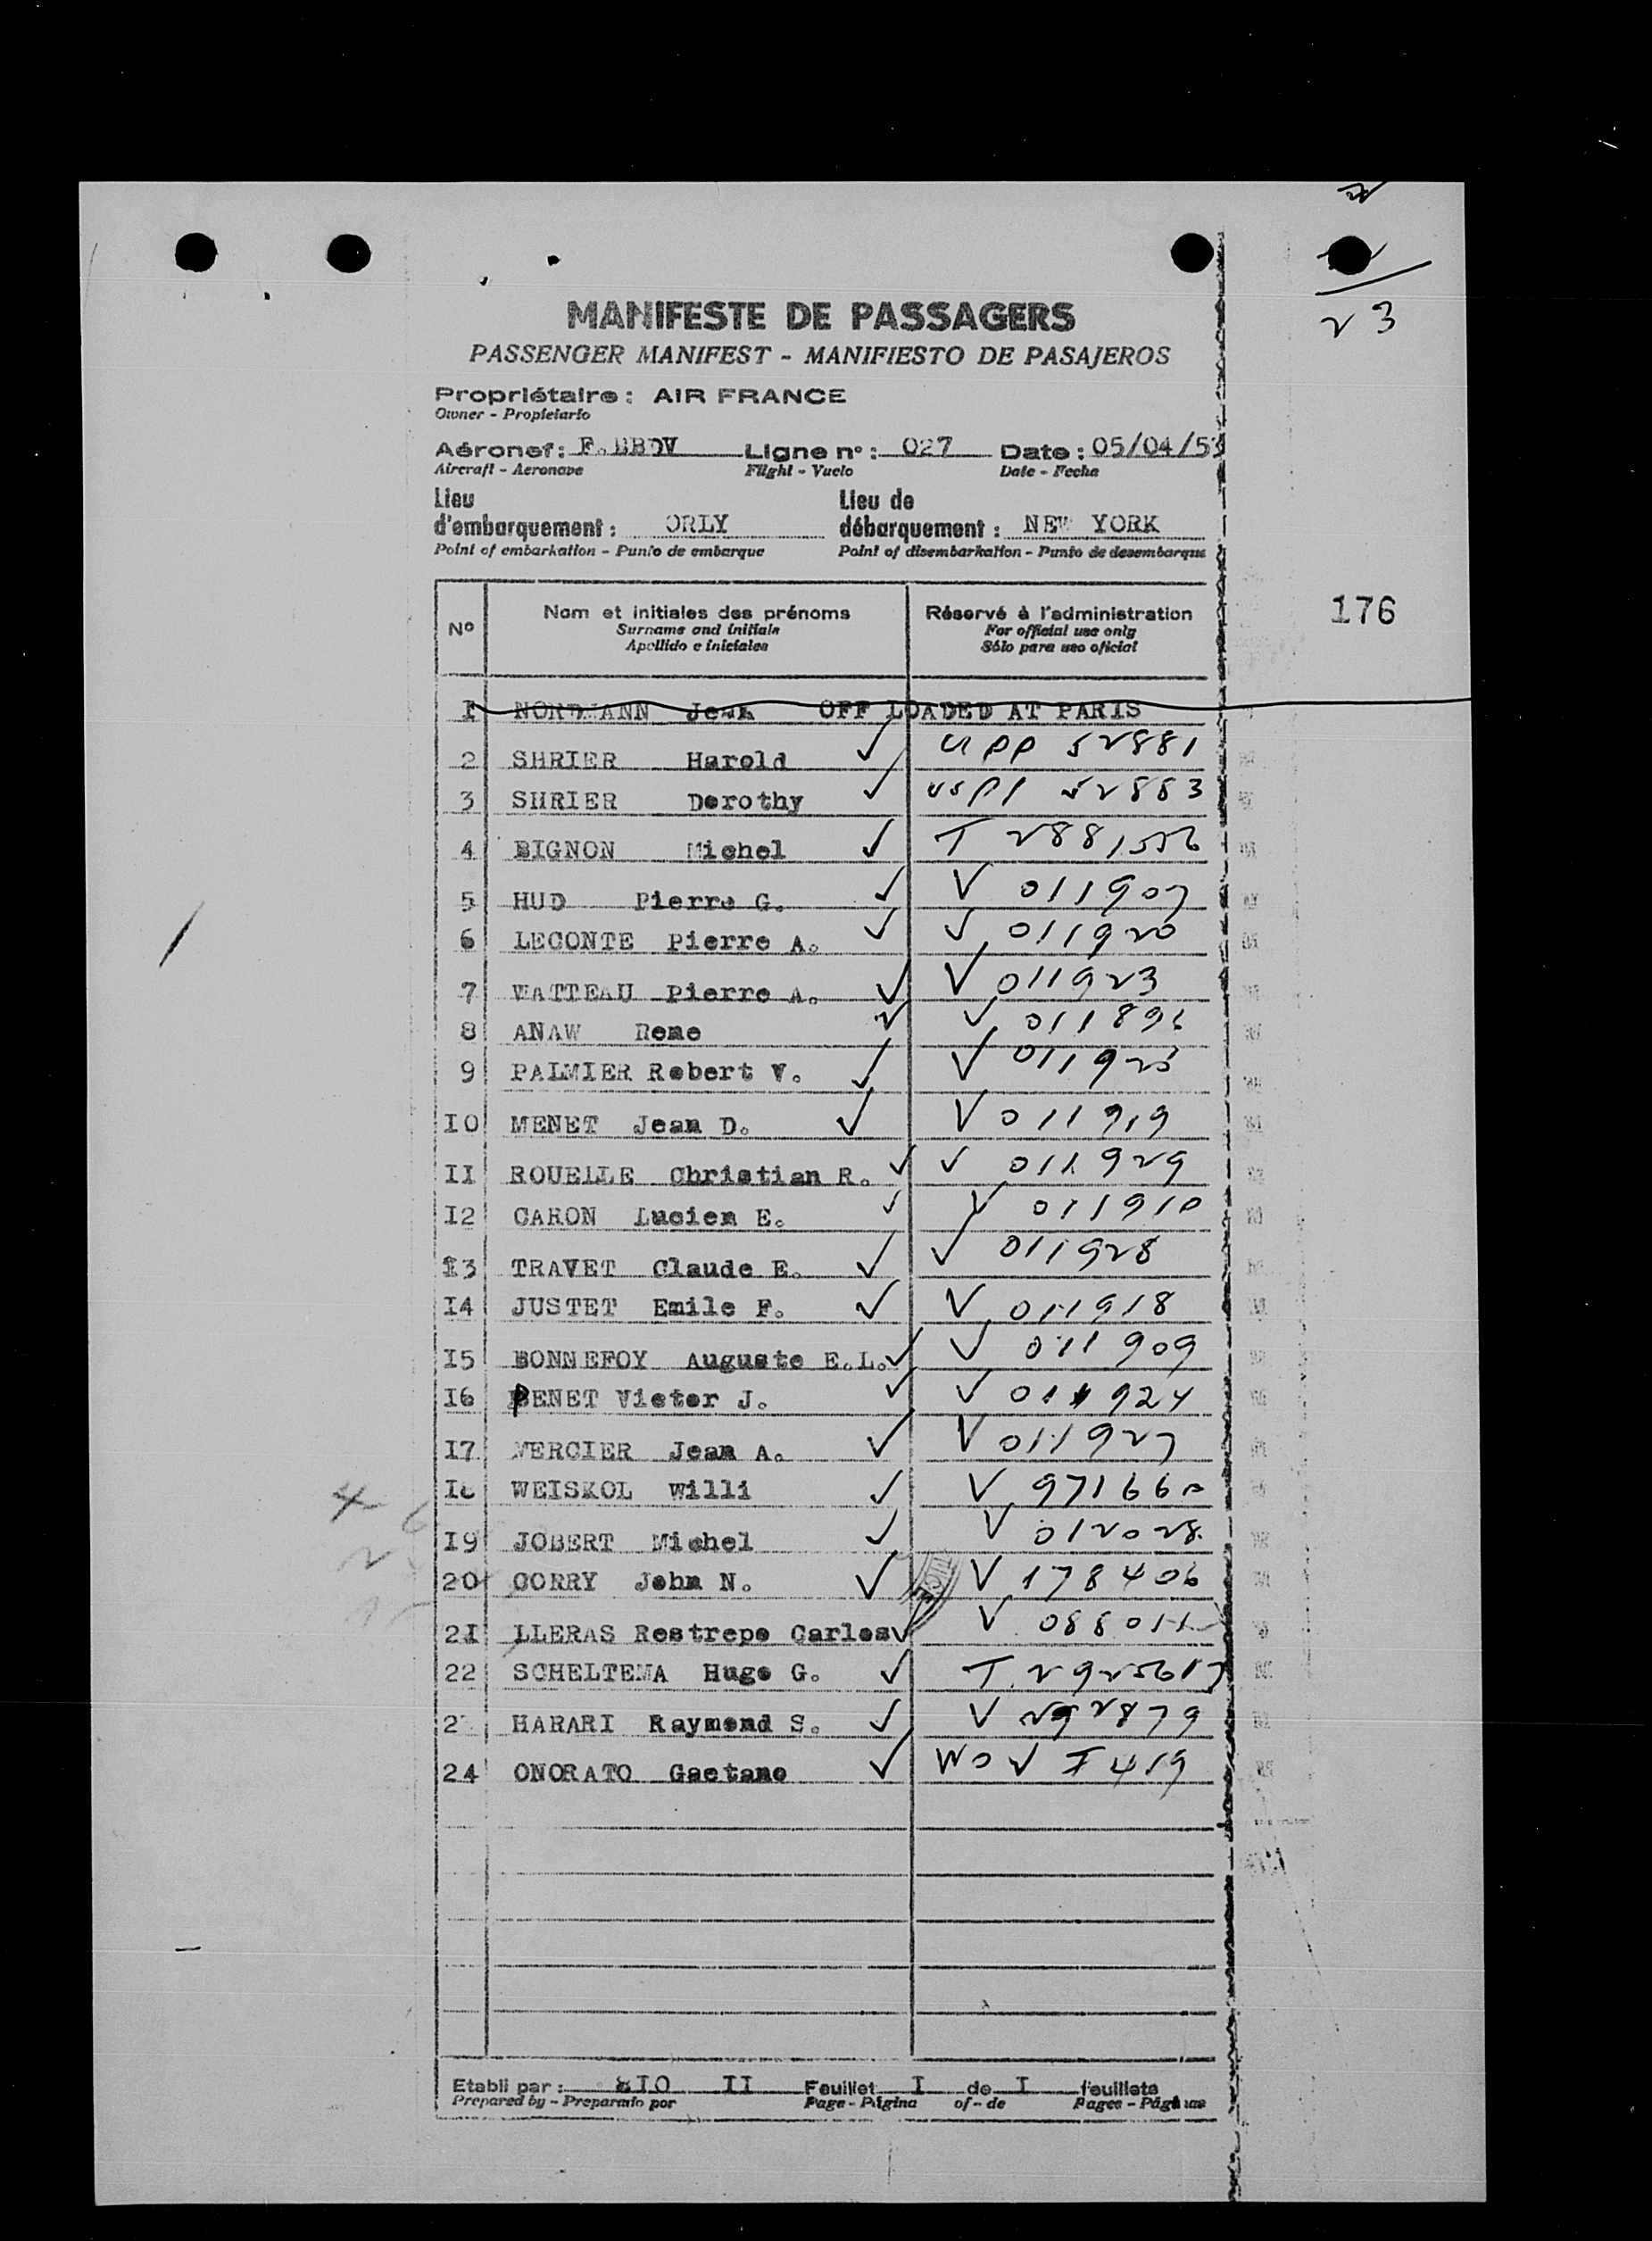 23
MANIFESTE DE PASSAGERS
PASSENGER MANIFEST - MANIFIESTO DE PASAJEROS
Propriétaire : AIR FRANCE
Owner - Propietario
Aéronef : F.BBDV Ligne n° : 027 Date : 05/04/53
Aircraft - Aeronave Flight - Vuelo Date - Fecha
Lieu d'embarquement : ORLY Lieu de débarquement : NEW YORK
Point of embarkation - Punto de embarque Point of disembarkation - Punto de desembarque
176
N° Nom et initiales des prénoms Réservé à l'administration
Surname and initials For official use only
Apellido e iniciales Sólo para uso oficial
I NORDMANN Jean OFF LOADED AT PARIS
2 SHRIER Harold ✓ 52881
3 SHRIER Dorothy ✓ 52883
4 BIGNON Michel ✓ T 2881556
5 HUD Pierre G. ✓ V 011907
6 LECONTE Pierre A. ✓ V 011920
7 WATTEAU Pierre A. ✓ V 011923
8 ANAW Rene ✓ V 011896
9 PALMIER Robert V. ✓ V 011925
I0 MENET Jean D. ✓ V 011919
II ROUELLE Christian R. ✓ V 011929
I2 CARON Lucien E. ✓ V 011910
I3 TRAVET Claude E. ✓ V 011928
I4 JUSTET Emile F. ✓ V 011918
I5 BONNEFOY Auguste E.L. ✓ V 011909
I6 PENET Victor J. ✓ V 011924
I7 MERCIER Jean A. ✓ V 011927
I8 WEISKOL Willi ✓ V 971660
I9 JOBERT Michel ✓ V 012028
20 CORRY John N. ✓ V 178406
2I LLERAS Restrepo Carlos ✓ V 088011
22 SCHELTEMA Hugo G. ✓ T 2925617
23 HARARI Raymond S. ✓ V 292879
24 ONORATO Gaetano ✓ I 419
Etabli par : SIO II Feuillet I de I feuillets
Prepared by - Preparado por Page - Página of - de Pages - Páginas